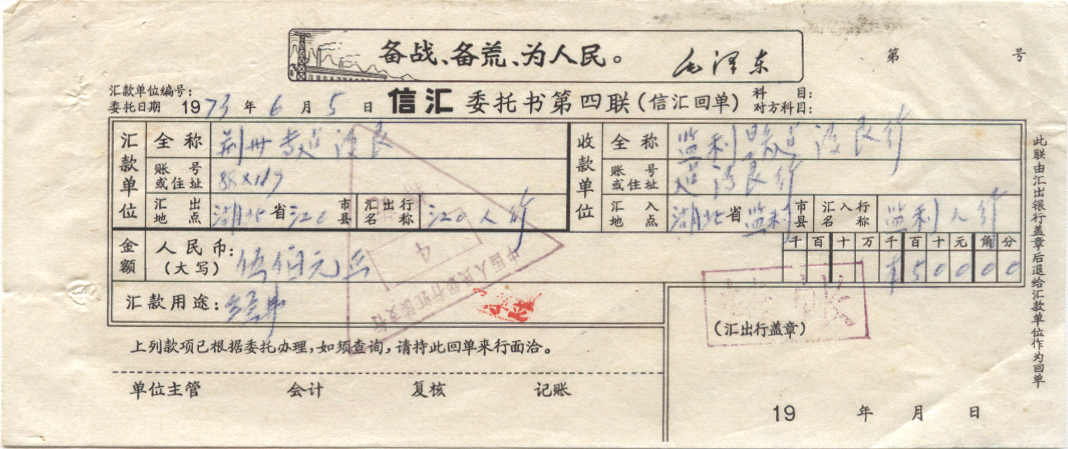 备战、备荒、为人民。 毛泽东
第 号
汇款单位编号:
委托日期 1973年6月5日 信汇 委托书第四联(信汇回单) 科 目: 对方科目:
汇款单位 全称 荆州 收款单位 全称 监利
账号或住址 账号或住址
汇出地点 湖北省江0市县 汇出行名称 江0人行 汇入地点 湖北省监利市县 汇入行名称 监利人行
金额 人民币:(大写) 伍佰元正 千百十万千百十元角分 ¥50000
汇款用途:
(汇出行盖章)
上列款项已根据委托办理,如须查询,请持此回单来行面洽。
单位主管 会计 复核 记账
19 年 月 日
此联由汇出银行盖章后退给汇款单位作为回单